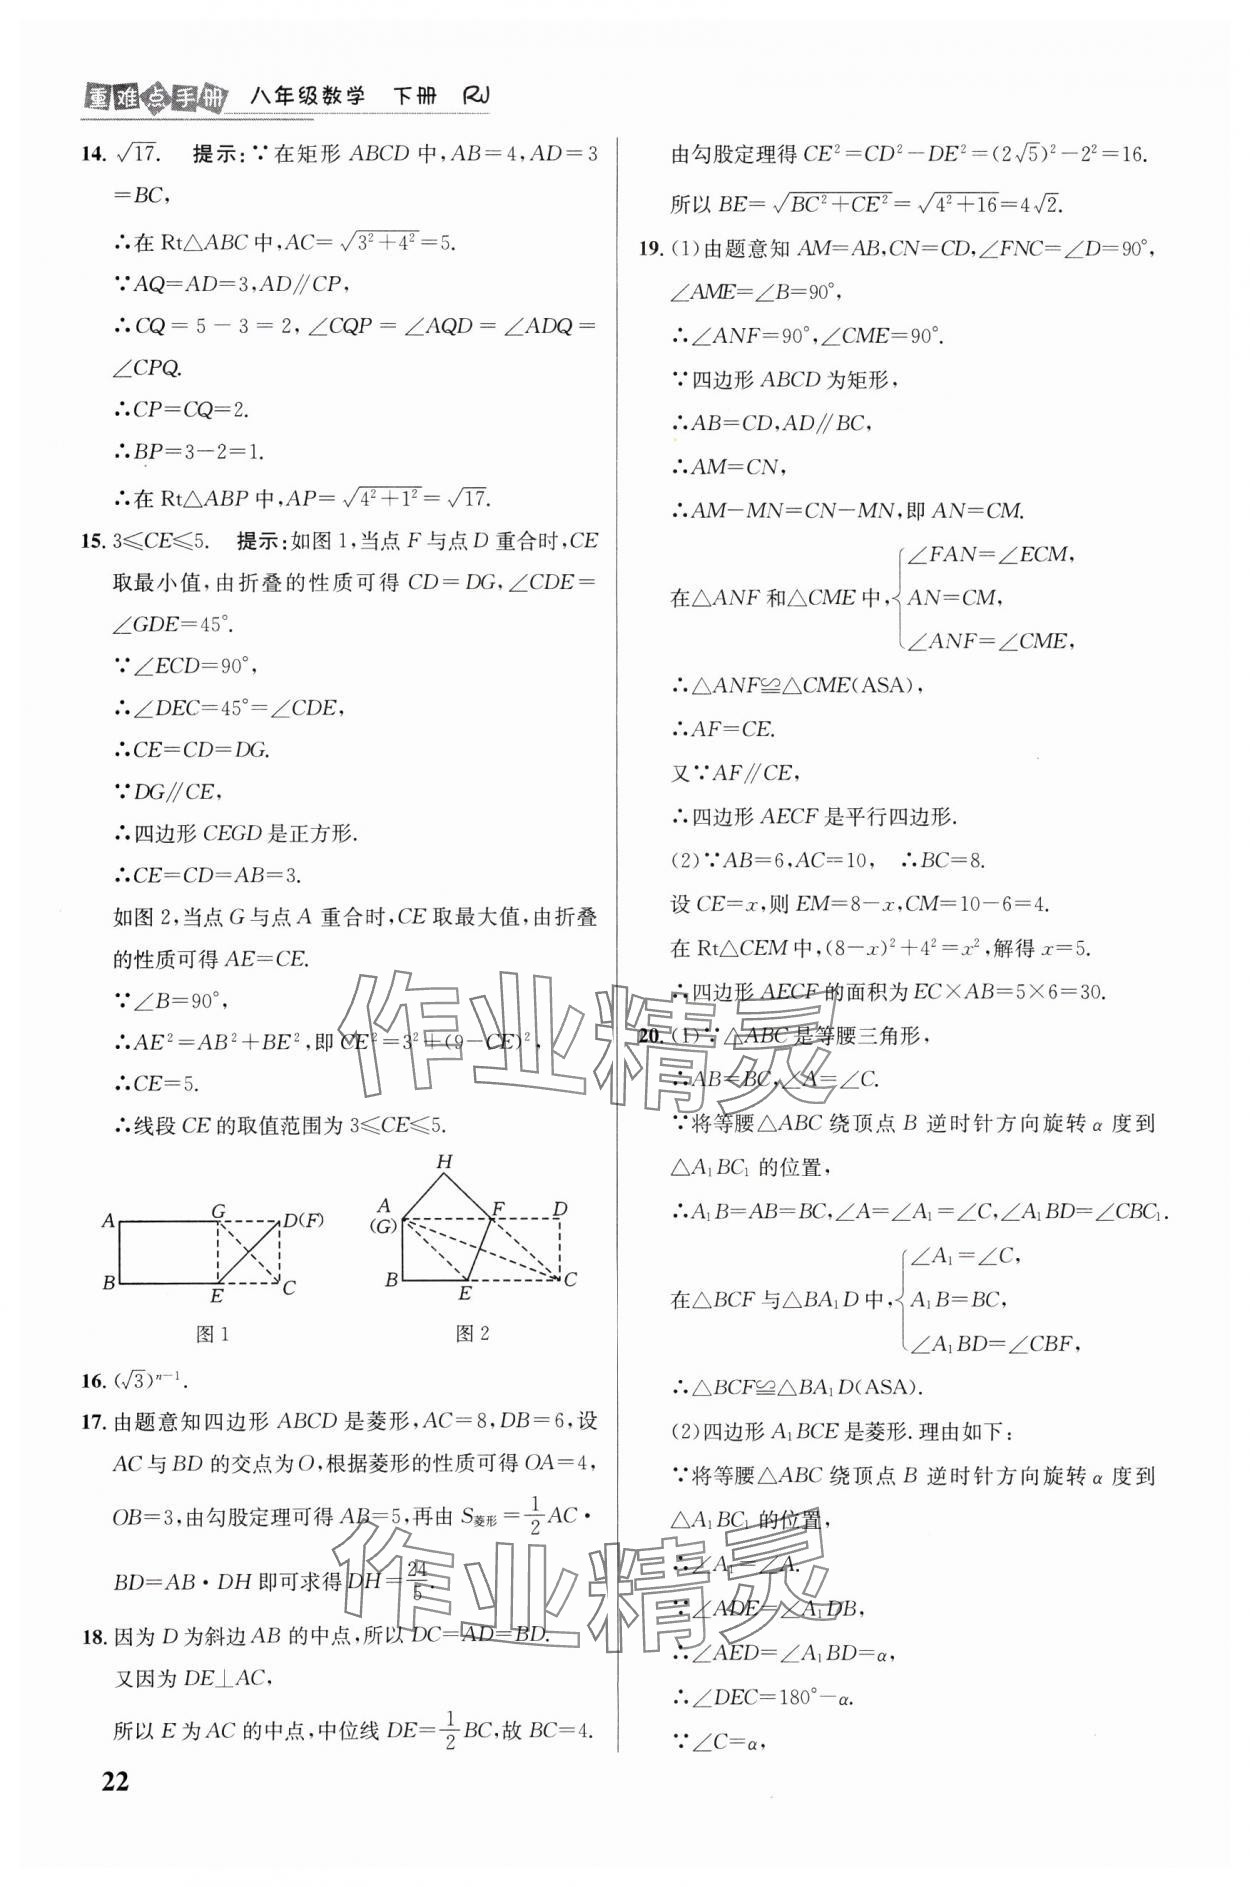 重难点手册 八年级数学 下册 RJ
14. √17. 提示:∵在矩形 ABCD 中,AB=4,AD=3
=BC,
∴在 Rt△ABC 中,AC=√(3²+4²)=5.
∵AQ=AD=3,AD∥CP,
∴CQ=5-3=2,∠CQP=∠AQD=∠ADQ=
∠CPQ.
∴CP=CQ=2.
∴BP=3-2=1.
∴在 Rt△ABP 中,AP=√(4²+1²)=√17.
15. 3≤CE≤5. 提示:如图 1,当点 F 与点 D 重合时,CE
取最小值,由折叠的性质可得 CD=DG,∠CDE=
∠GDE=45°.
∵∠ECD=90°,
∴∠DEC=45°=∠CDE,
∴CE=CD=DG.
∵DG∥CE,
∴四边形 CEGD 是正方形.
∴CE=CD=AB=3.
如图 2,当点 G 与点 A 重合时,CE 取最大值,由折叠
的性质可得 AE=CE.
∵∠B=90°,
∴AE²=AB²+BE²,即 CE²=3²+(9-CE)²,
∴CE=5.
∴线段 CE 的取值范围为 3≤CE≤5.
A G D(F) B E C
图 1
H A (G) F D B E C
图 2
16. (√3)ⁿ⁻¹.
17. 由题意知四边形 ABCD 是菱形,AC=8,DB=6,设
AC 与 BD 的交点为 O,根据菱形的性质可得 OA=4,
OB=3,由勾股定理可得 AB=5,再由 S菱形=1/2 AC·
BD=AB·DH 即可求得 DH=24/5.
18. 因为 D 为斜边 AB 的中点,所以 DC=AD=BD.
又因为 DE⊥AC,
所以 E 为 AC 的中点,中位线 DE=1/2 BC,故 BC=4.
22
由勾股定理得 CE²=CD²-DE²=(2√5)²-2²=16.
所以 BE=√(BC²+CE²)=√(4²+16)=4√2.
19. (1)由题意知 AM=AB,CN=CD,∠FNC=∠D=90°,
∠AME=∠B=90°,
∴∠ANF=90°,∠CME=90°.
∵四边形 ABCD 为矩形,
∴AB=CD,AD∥BC,
∴AM=CN,
∴AM-MN=CN-MN,即 AN=CM.
∠FAN=∠ECM,
在△ANF 和△CME 中,{AN=CM,
∠ANF=∠CME,
∴△ANF≌△CME(ASA),
∴AF=CE.
又∵AF∥CE,
∴四边形 AECF 是平行四边形.
(2)∵AB=6,AC=10, ∴BC=8.
设 CE=x,则 EM=8-x,CM=10-6=4.
在 Rt△CEM 中,(8-x)²+4²=x²,解得 x=5.
∴四边形 AECF 的面积为 EC×AB=5×6=30.
20. (1)∵△ABC 是等腰三角形,
∴AB=BC,∠A=∠C.
∵将等腰△ABC 绕顶点 B 逆时针方向旋转 α 度到
△A₁BC₁ 的位置,
∴A₁B=AB=BC,∠A=∠A₁=∠C,∠A₁BD=∠CBC₁.
∠A₁=∠C,
在△BCF 与△BA₁D 中,{A₁B=BC,
∠A₁BD=∠CBF,
∴△BCF≌△BA₁D(ASA).
(2)四边形 A₁BCE 是菱形.理由如下:
∵将等腰△ABC 绕顶点 B 逆时针方向旋转 α 度到
△A₁BC₁ 的位置,
∴∠A₁=∠A.
∵∠ADE=∠A₁DB,
∴∠AED=∠A₁BD=α,
∴∠DEC=180°-α.
∵∠C=α,
作业精灵
作业精灵